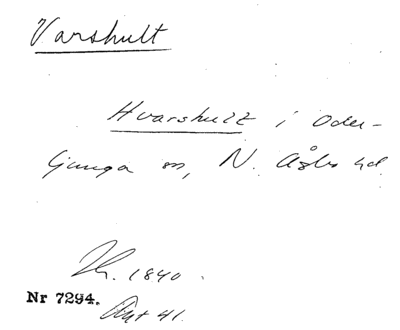 Varshult
Hvarshult i Oder-
ljunga sn, N. Åsbo hd
1840.
Nr 7294.
41.